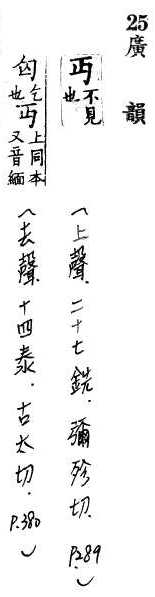 25 廣韻
丏 不見也 (上聲. 二十七銑. 彌殄切. P.289)
匃 乞也 丐 上同本又音緬 (去聲. 十四泰. 古太切. P.380)